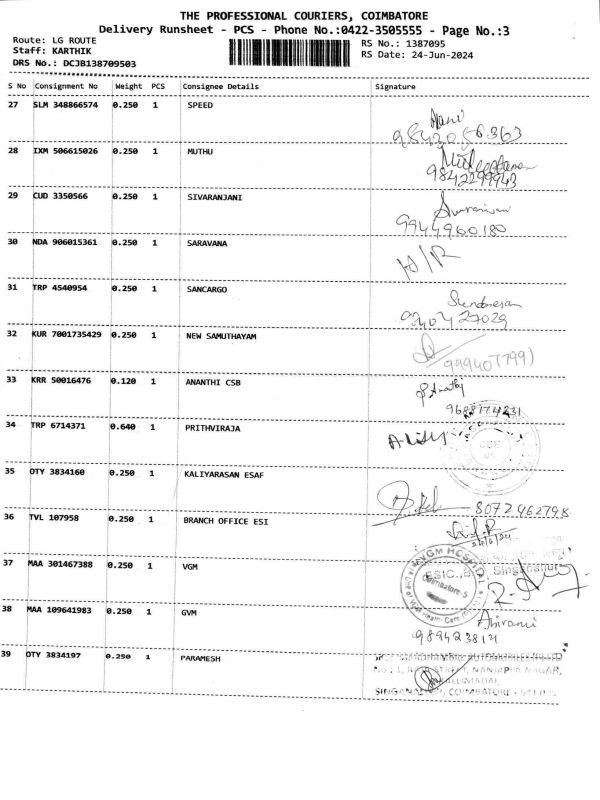 THE PROFESSIONAL COURIERS, COIMBATORE
Delivery Runsheet - PCS - Phone No.:0422-3505555 - Page No.:3
Route: LG ROUTE
Staff: KARTHIK
DRS No.: DCJB138709503
RS No.: 1387095
RS Date: 24-Jun-2024
S No Consignment No Weight PCS Consignee Details Signature
27 SLM 348866574 0.250 1 SPEED
Mani
28 IXM 506615026 0.250 1 MUTHU
9842299943
29 CUD 3350566 0.250 1 SIVARANJANI
Sivaranjani
9944960180
30 NDA 906015361 0.250 1 SARAVANA
31 TRP 4540954 0.250 1 SANCARGO
32 KUR 7001735429 0.250 1 NEW SAMUTHAYAM
33 KRR 50016476 0.120 1 ANANTHI CSB
9688174231
34 TRP 6714371 0.640 1 PRITHVIRAJA
35 OTY 3834160 0.250 1 KALIYARASAN ESAF
8072962798
36 TVL 107958 0.250 1 BRANCH OFFICE ESI
24/6/24
37 MAA 301467388 0.250 1 VGM
VGM HOSPITAL
ESIC
Coimbatore-5
38 MAA 109641983 0.250 1 GVM
Abirami
39 OTY 3834197 0.250 1 PARAMESH
SINGANALLUR, COIMBATORE